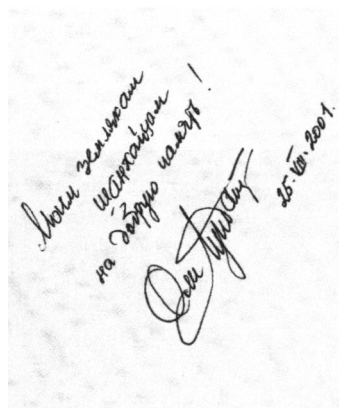 Моим землякам
шаркайцам
на добрую память!
25.VIII.2001.